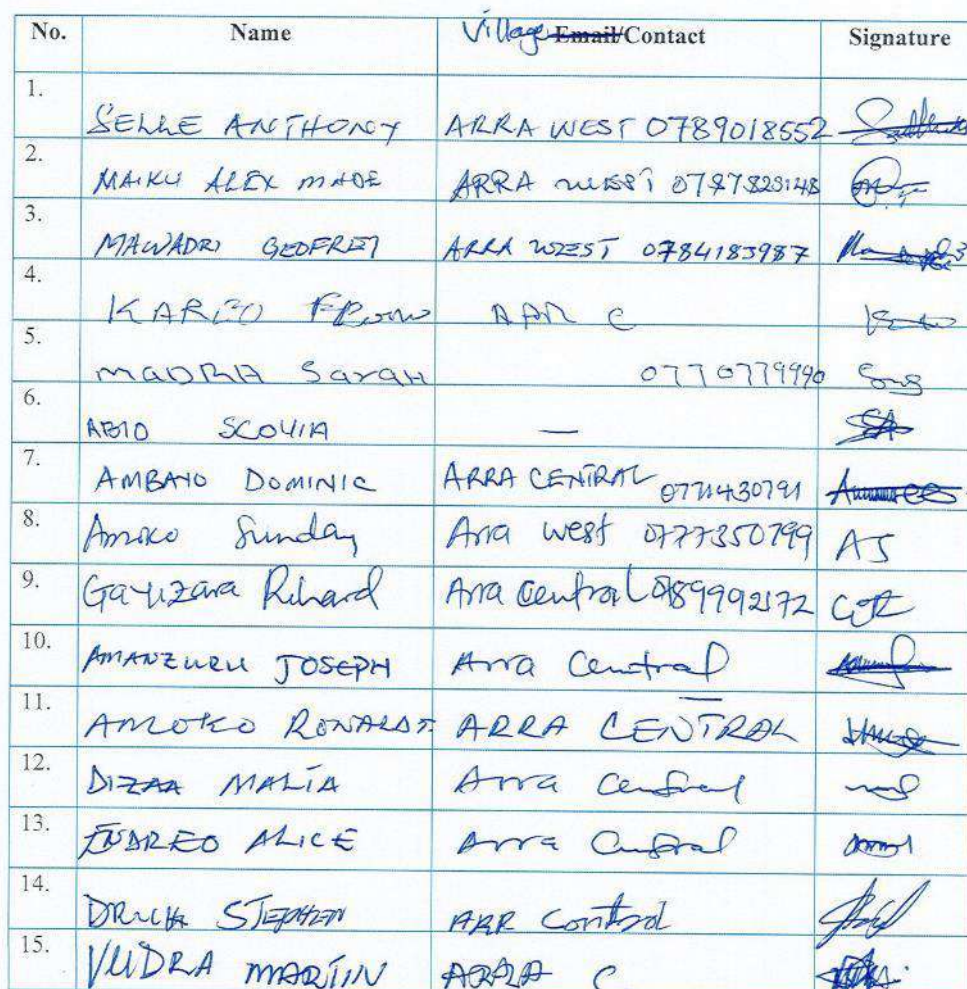 No. Name Village Email/Contact Signature
1. SELLE ANTHONY ARRA WEST 0789018552
2. MAIKU ALEX MADE ARRA WEST 0787823148
3. MAWADRI GEOFREY ARRA WEST 0784183987
4. KARIO
5. MADRA Sarah 0770779990
6. ABIO SCOVIA —
7. AMBAYO DOMINIC ARRA CENTRAL 0771430791
8. Amoko Sunday Arra West 0777350799 AS
9. Gayizara Rihard Arra Central 0789992172 GR
10. AMANZURU JOSEPH Arra Central
11. AMOKO RONALD ARRA CENTRAL
12. DIZAA MALIA Arra Central
13. ENDREO ALICE Arra Central
14. DRICHI STEPHEN ARR Central
15. VUDRA MARTIN ARRA C